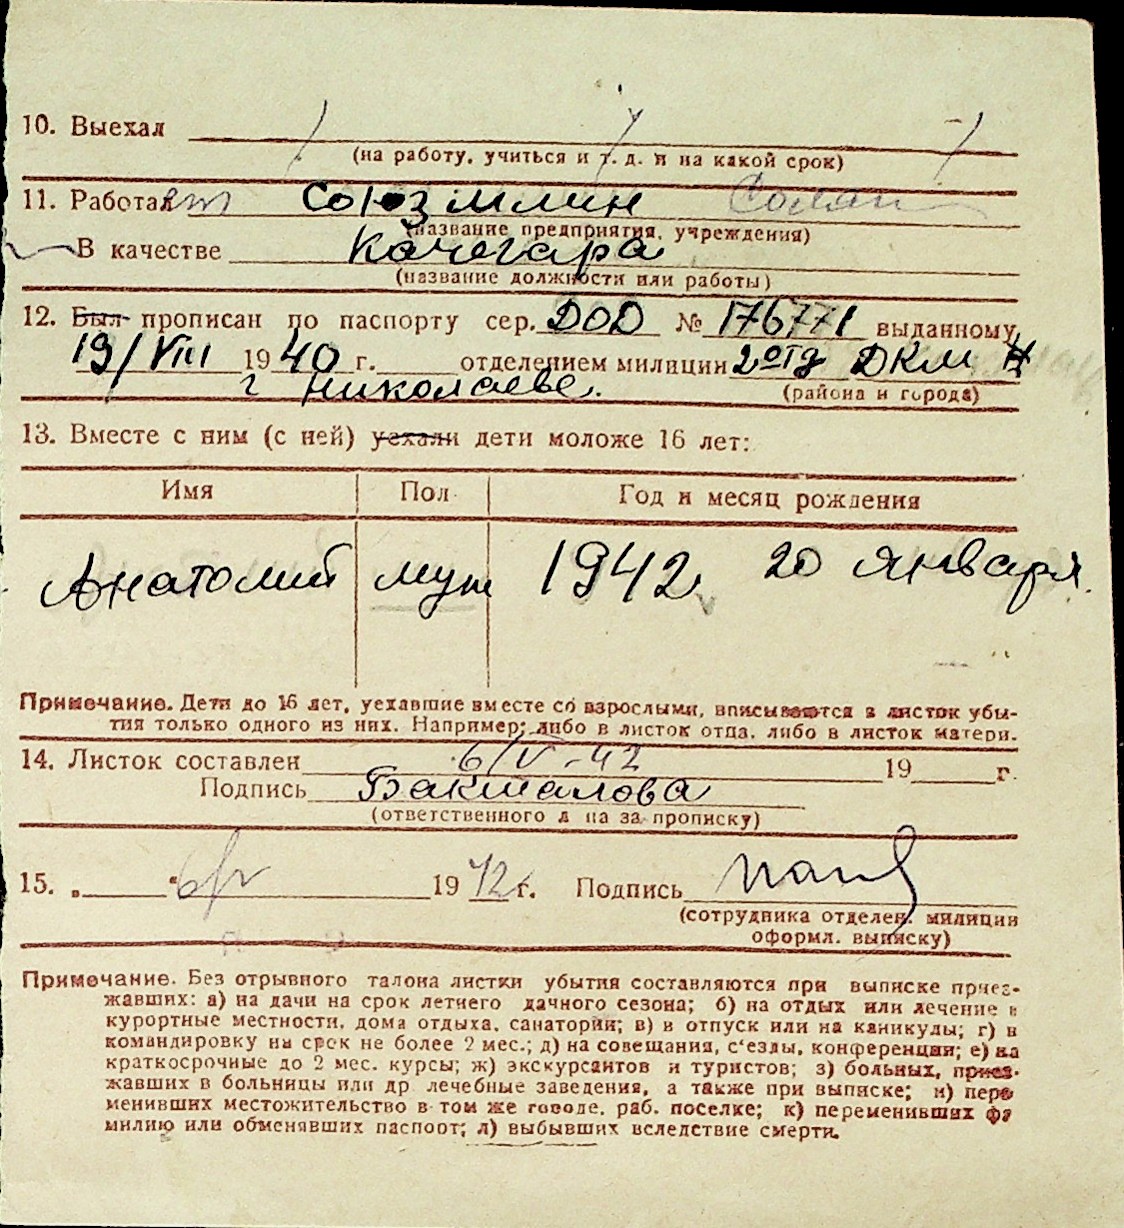 10. Выехал
(на работу, учиться и т. д. и на какой срок)
11. Работает Союзмлин
(название предприятия, учреждения)
В качестве Качегара
(название должности или работы)
12. Был прописан по паспорту сер. ДОД № 176771 выданному
19/VIII 1940 г. отделением милиции 2 отд ДКМ
г Николаеве. (района и города)
13. Вместе с ним (с ней) уехали дети моложе 16 лет:
Имя Пол Год и месяц рождения
Анатолий муж 1942 20 января.
Примечание. Дети до 16 лет, уехавшие вместе со взрослыми, вписываются в листок убы-
тия только одного из них. Например: либо в листок отца, либо в листок матери.
14. Листок составлен 6/V-42 19 г.
Подпись Бакшалова
(ответственного л на за прописку)
15. „ “ 6/V 1942 г. Подпись
(сотрудника отделен. милиции
оформл. выписку)
Примечание. Без отрывного талона листки убытия составляются при выписке приез-
жавших: а) на дачи на срок летнего дачного сезона; б) на отдых или лечение в
курортные местности, дома отдыха, санатории; в) в отпуск или на каникулы; г) в
командировку на срок не более 2 мес.; д) на совещания, с'езды, конференции; е) на
краткосрочные до 2 мес. курсы; ж) экскурсантов и туристов; з) больных, приез-
жавших в больницы или др лечебные заведения, а также при выписке; и) пере
менивших местожительство в том же городе, раб. поселке; к) переменивших фа
милию или обменявших паспорт; л) выбывших вследствие смерти.